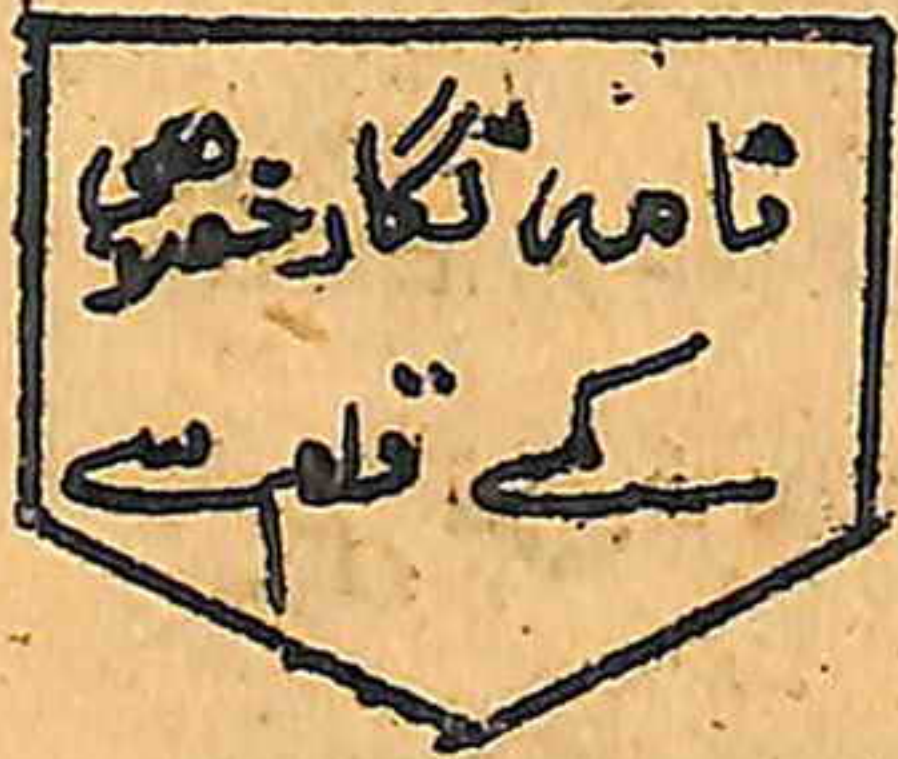 نامہ نگار خصوصی
کے قلم سے